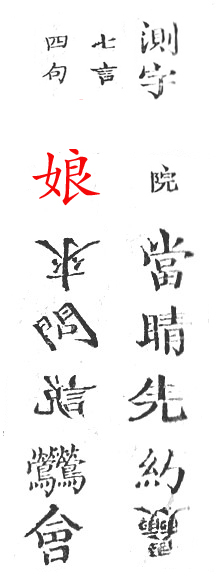 測字
七言
四句
院當晴先約
娘來問說鶯鶯會